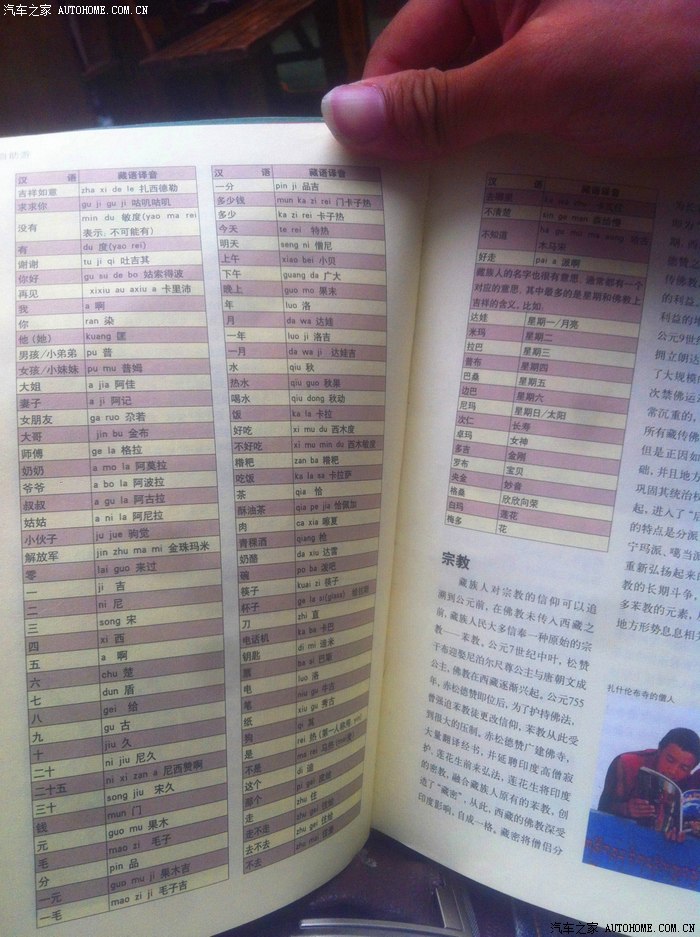 汽车之家 AUTOHOME.COM.CN
汉 语 藏语译音
吉祥如意 zha xi de le 扎西德勒
求求你 gu ji gu ji 咕叽咕叽
没有 min du 敏度(yao ma rei
表示，不可能有)
有 du 度(yao rei)
谢谢 tu ji qi 吐吉其
你好 gu su de bo 姑索得波
再见 xixiu au axiu a 卡里沛
我 a 啊
你 ran 染
他(她) kuang 匡
男孩/小弟弟 pu 普
女孩/小妹妹 pu mu 普姆
大姐 a jia 阿佳
妻子 a ji 阿记
女朋友 ga ruo 尕若
大哥 jin bu 金布
师傅 ge la 格拉
奶奶 a mo la 阿莫拉
爷爷 a bo la 阿波拉
叔叔 a gu la 阿古拉
姑姑 a ni la 阿尼拉
小伙子 ju jue 驹觉
解放军 jin zhu ma mi 金珠玛米
零 lai guo 来过
一 ji 吉
二 ni 尼
三 song 宋
四 xi 西
五 a 啊
六 chu 楚
七 dun 盾
八 gei 给
九 gu 古
十 jiu 久
二十 ni jiu 尼久
二十五 ni xi zan a 尼西赞啊
三十 song jiu 宋久
钱 mun 门
元 guo mu 果木
毛 mao zi 毛子
分 pin 品
一元 guo mu ji 果木吉
一毛 mao zi ji 毛子吉
汉 语 藏语译音
一分 pin ji 品吉
多少钱 mun ka zi rei 门卡子热
多少 ka zi rei 卡子热
今天 te rei 特热
明天 seng ni 僧尼
上午 xiao bei 小贝
下午 guang da 广大
晚上 guo mo 果末
年 luo 洛
月 da wa 达娃
一年 luo ji 洛吉
一月 da wa ji 达娃吉
水 qiu 秋
热水 qiu guo 秋果
喝水 qiu dong 秋动
饭 ka la 卡拉
好吃 xi mu du 西木度
不好吃 xi mu min du 西木敏度
糌粑 zan ba 糌粑
吃饭 ka la sa 卡拉萨
茶 qia 恰
酥油茶 qia pe jia 恰佩加
肉 ca xia 嚓夏
青稞酒 qiang 枪
奶酪 da xiu 达雪
碗 po ba 泼吧
筷子 kuai zi 筷子
杯子
刀 zhi 直
电话机 ka ba 卡巴
钥匙 di mi 迪米
ba si 巴斯
电 luo 洛
笔 niu gu 牛古
纸 xiu gu 秀古
狗 qi 其
是 rei 热
不是 ma rei 马热
这个 di 迪
那个
走 zhu 住
走不走
去不去
不去
汉 语 藏语译音
不清楚
不知道
木马宋
好走 pai a 派啊
藏族人的名字也很有意思，通常都有一个
对应的意思，其中最多的是星期和佛教上
吉祥的含义，比如，
达娃 星期一/月亮
米玛 星期二
拉巴 星期三
普布 星期四
巴桑 星期五
边巴 星期六
尼玛 星期日/太阳
次仁 长寿
卓玛 女神
多吉 金刚
罗布 宝贝
央金 妙音
格桑 欣欣向荣
白玛 莲花
梅多 花
宗教
藏族人对宗教的信仰可以追
溯到公元前，在佛教未传入西藏之
前，藏族人民大多信奉一种原始的宗
教——苯教。公元7世纪中叶，松赞
干布迎娶尼泊尔尺尊公主与唐朝文成
公主，佛教在西藏逐渐兴起。公元755
年，赤松德赞即位后，为了护持佛法，
曾强迫苯教徒更改信仰，苯教从此受
到很大的压制。赤松德赞广建佛寺，
大量翻译经书，并延聘印度高僧寂
护、莲花生前来弘法，莲花生将印度
的密教，融合藏族人原有的苯教，创
造了“藏密”，从此，西藏的佛教深受
印度影响，自成一格。藏密将僧侣分
德赞之
传佛教
的利益
利益的
公元9世纪
拥立朗达
了大规模
次禁佛运
常沉重的，
所有藏传佛
但是正因如
础，并且地方
巩固其统治
起，进入了“后
的特点是分派
宁玛派、噶当派
重新弘扬起来
教的长期斗争，
多苯教的元素，
地方形势息息相
扎什伦布寺的僧人
汽车之家 AUTOHOME.COM.CN